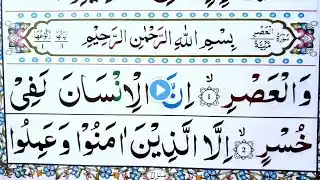 سُورَةُ الْعَصْرِ مَكِّيَّةٌ
بِسْمِ اللهِ الرَّحْمٰنِ الرَّحِيْمِ
وَالْعَصْرِ ۙ‏ 1 اِنَّ الْاِنْسَانَ لَفِیْ
خُسْرٍ ۙ‏ 2 اِلَّا الَّذِيْنَ اٰمَنُوْا وَعَمِلُوا